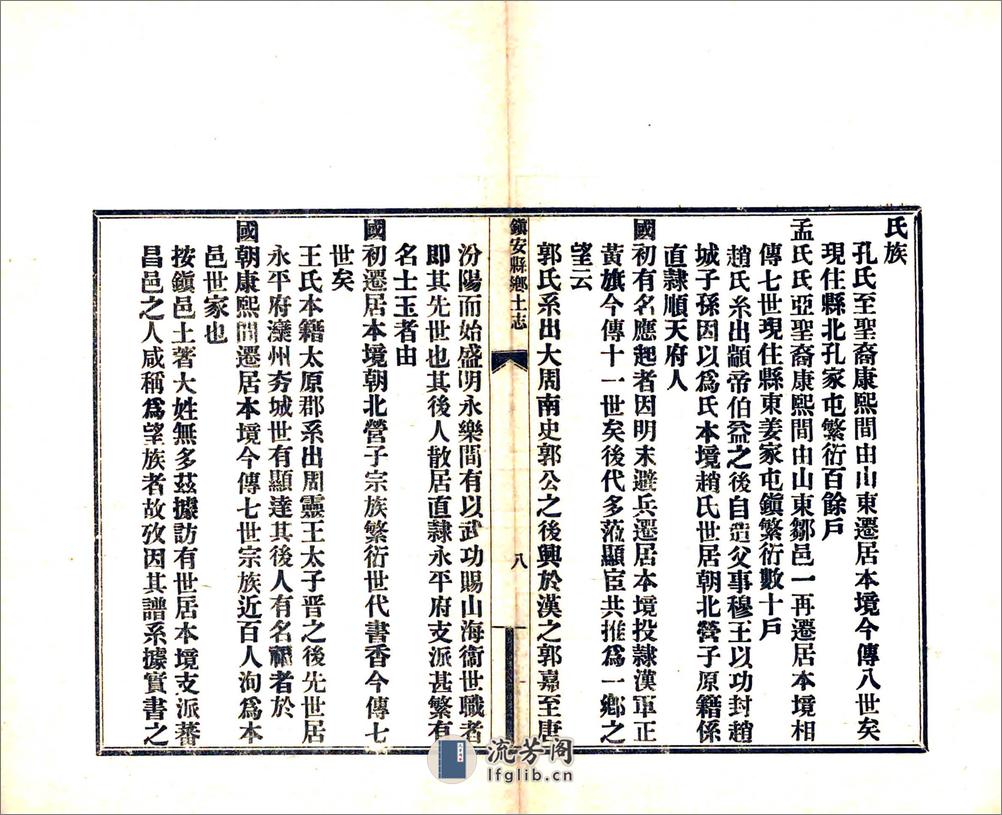 氏族
孔氏至聖裔康熙間由山東遷居本境今傳八世矣
現住縣北孔家屯繁衍百餘戶
孟氏氏亞聖裔康熙間由山東鄒邑一再遷居本境相
傳七世現住縣東姜家屯鎮繁衍數十戶
趙氏系出顓帝伯益之後自造父事穆王以功封趙
城子孫因以爲氏本境趙氏世居朝北營子原籍係
直隸順天府人
國初有名應起者因明末避兵遷居本境投隸漢軍正
黃旗今傳十一世矣後代多蒞顯宦共推爲一鄉之
望云
郭氏系出大周南史郭公之後興於漢之郭嘉至唐
鎮安縣鄉土志
八
汾陽而始盛明永樂間有以武功賜山海衞世職者
即其先世也其後人散居直隸永平府支派甚繁有
名士玉者由
國初遷居本境朝北營子宗族繁衍世代書香今傳七
世矣
王氏本籍太原郡系出周靈王太子晉之後先世居
永平府灤州夯城世有顯達其後人有名 者於
國朝康熙間遷居本境今傳七世宗族近百人洵爲本
邑世家也
按鎮邑土著大姓無多茲據訪有世居本境支派蕃
昌邑之人咸稱爲望族者故攷因其譜系據實書之
流芳阁
lfglib.cn